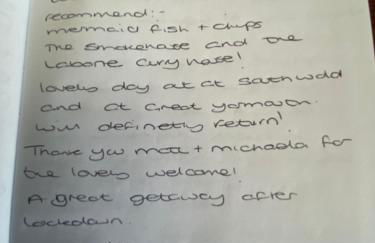 recommend:-
mermaid fish + chips
The Smokehouse and the
Labone Curry house!
lovely day at at Southwold
and at Great yarmouth.
will definetly return!
Thank you matt + michaela for
the lovely welcome!
A great getaway after
lockdown.